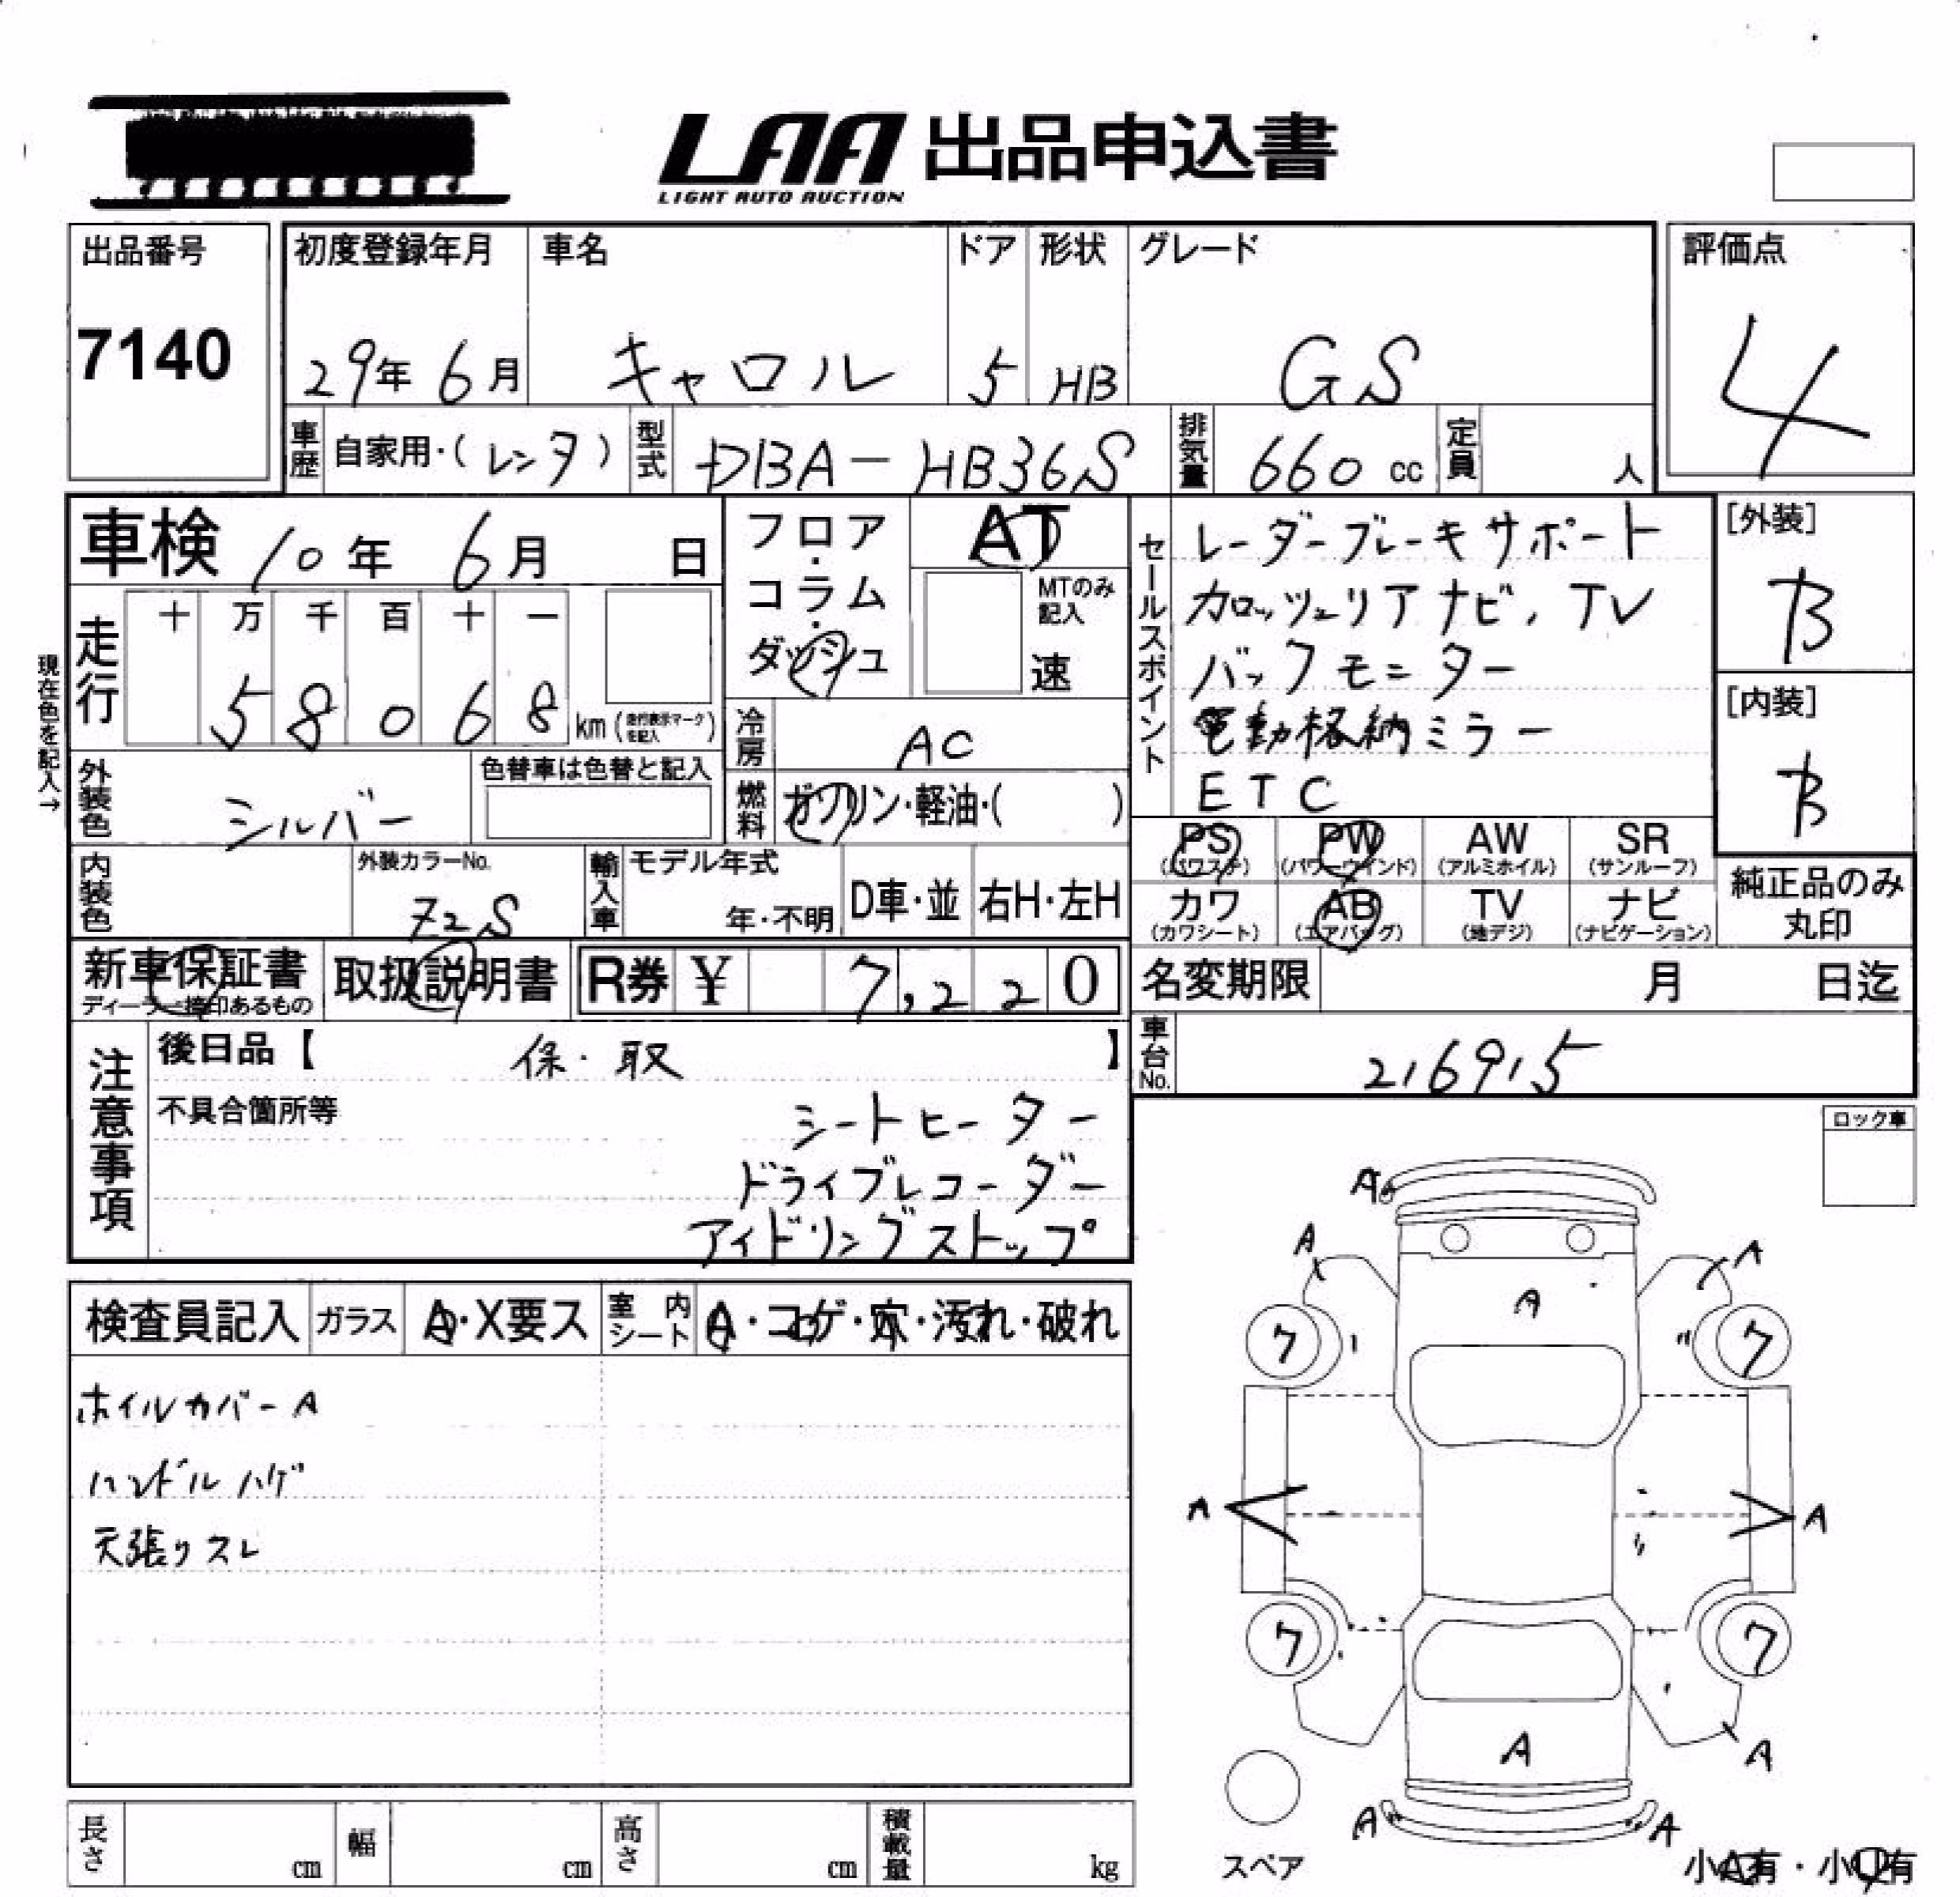 LAA 出品申込書
LIGHT AUTO AUCTION
出品番号
7140
初度登録年月
29年 6月
車名
キャロル
ドア
5
形状
HB
グレード
GS
評価点
4
車歴 自家用・(レンタ)
型式 DBA-HB36S
排気量 660 cc
定員 人
車検 10年 6月 日
フロア・コラム・ダッシュ
AT
MTのみ記入
速
セールスポイント
レーダーブレーキサポート
カロッツェリアナビ、TV
バックモニター
電動格納ミラー
ETC
[外装]
B
[内装]
B
現在色を記入→
走行
十 万 千 百 十 一
5 8 0 6 8 km (走行表示マークを記入)
冷房 AC
外装色 シルバー
色替車は色替と記入
燃料 ガソリン・軽油・( )
PS (パワステ)
PW (パワーウインド)
AW (アルミホイル)
SR (サンルーフ)
カワ (カワシート)
AB (エアバッグ)
TV (地デジ)
ナビ (ナビゲーション)
純正品のみ丸印
内装色
外装カラーNo.
Z2S
輸入車
モデル年式
年・不明
D車・並
右H・左H
新車保証書
ディーラー捺印あるもの
取扱説明書
R券 ¥ 7,220
名変期限 月 日迄
車台No. 216915
注意事項
後日品【 保・取 】
不具合箇所等
シートヒーター
ドライブレコーダー
アイドリングストップ
ロック車
検査員記入
ガラス A・X要ス
室内シート A・コゲ・穴・汚れ・破れ
ホイルカバーA
ハンドルハゲ
天張りスレ
A
A
A
A
ク
ク
A
A
ク
ク
A
A
A
A
スペア
小A有・小U有
長さ cm
幅 cm
高さ cm
積載量 kg